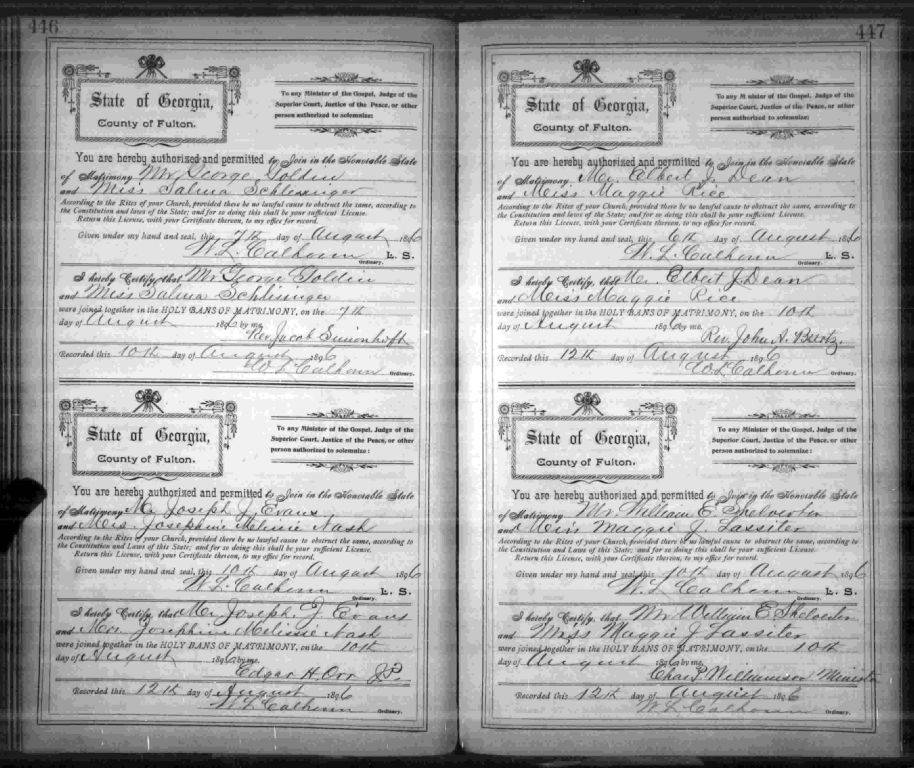 446
State of Georgia,
County of Fulton.
To any Minister of the Gospel, Judge of the
Superior Court, Justice of the Peace, or other
person authorized to solemnize:
You are hereby authorized and permitted to Join in the Honorable State
of Matrimony Mr George Goldin
and Miss Salma Schlesinger
According to the Rites of your Church, provided there be no lawful cause to obstruct the same, according to
the Constitution and laws of the State; and for so doing this shall be your sufficient License.
Return this License, with your Certificate thereon, to my office for record.
Given under my hand and seal, this 7th day of August 1896
W. L. Calhoun L. S.
Ordinary.
I hereby Certify, that Mr George Goldin
and Miss Salma Schlesinger
were joined together in the HOLY BANS OF MATRIMONY, on the 9th
day of August 1896 by me,
Rev Jacob
Recorded this 10th day of August 1896
W L Calhoun Ordinary.
State of Georgia,
County of Fulton.
To any Minister of the Gospel, Judge of the
Superior Court, Justice of the Peace, or other
person authorized to solemnize:
You are hereby authorized and permitted to Join in the Honorable State
of Matrimony Mr Joseph J. Evans
and Mrs. Josephine Nash
According to the Rites of your Church, provided there be no lawful cause to obstruct the same, according to
the Constitution and Laws of this State; and for so doing this shall be your sufficient License.
Return this License, with your Certificate thereon, to my office for record.
Given under my hand and seal, this 10th day of August 1896
W. L. Calhoun L. S.
Ordinary.
I hereby Certify that Mr Joseph J. Evans
and Mrs Josephine Nash
were joined together in the HOLY BANS OF MATRIMONY, on the 10th
day of August 1896 by me.
Edgar H. Orr J.P.
Recorded this 12th day of August 1896
W L Calhoun Ordinary.
447
State of Georgia,
County of Fulton.
To any Minister of the Gospel, Judge of the
Superior Court, Justice of the Peace, or other
person authorized to solemnize:
You are hereby authorized and permitted to Join in the Honorable State
of Matrimony Mr. Elbert J. Dean
and Miss Maggie Rice
According to the Rites of your Church, provided there be no lawful cause to obstruct the same, according to
the Constitution and laws of the State; and for so doing this shall be your sufficient License.
Return this License, with your Certificate thereon, to my office for record.
Given under my hand and seal, this 6th day of August 1896
W. L. Calhoun L. S.
Ordinary.
I hereby Certify, that Mr. Elbert J. Dean
and Miss Maggie Rice
were joined together in the HOLY BANS OF MATRIMONY, on the 10th
day of August 1896 by me,
Rev. John A.
Recorded this 12th day of August 1896
W L Calhoun Ordinary.
State of Georgia,
County of Fulton.
To any Minister of the Gospel, Judge of the
Superior Court, Justice of the Peace, or other
person authorized to solemnize:
You are hereby authorized and permitted to Join in the Honorable State
of Matrimony Mr. William E.
and Miss Maggie J. Lassiter
According to the Rites of your Church, provided there be no lawful cause to obstruct the same, according to
the Constitution and Laws of this State; and for so doing this shall be your sufficient License.
Return this License, with your Certificate thereon, to my office for record.
Given under my hand and seal, this 10th day of August 1896
W. L. Calhoun L. S.
Ordinary.
I hereby Certify, that Mr William E.
and Miss Maggie J Lassiter
were joined together in the HOLY BANS OF MATRIMONY, on the 10th
day of August 1896 by me,
Chas P. Williamson Minister
Recorded this 12th day of August 1896
W L Calhoun Ordinary.